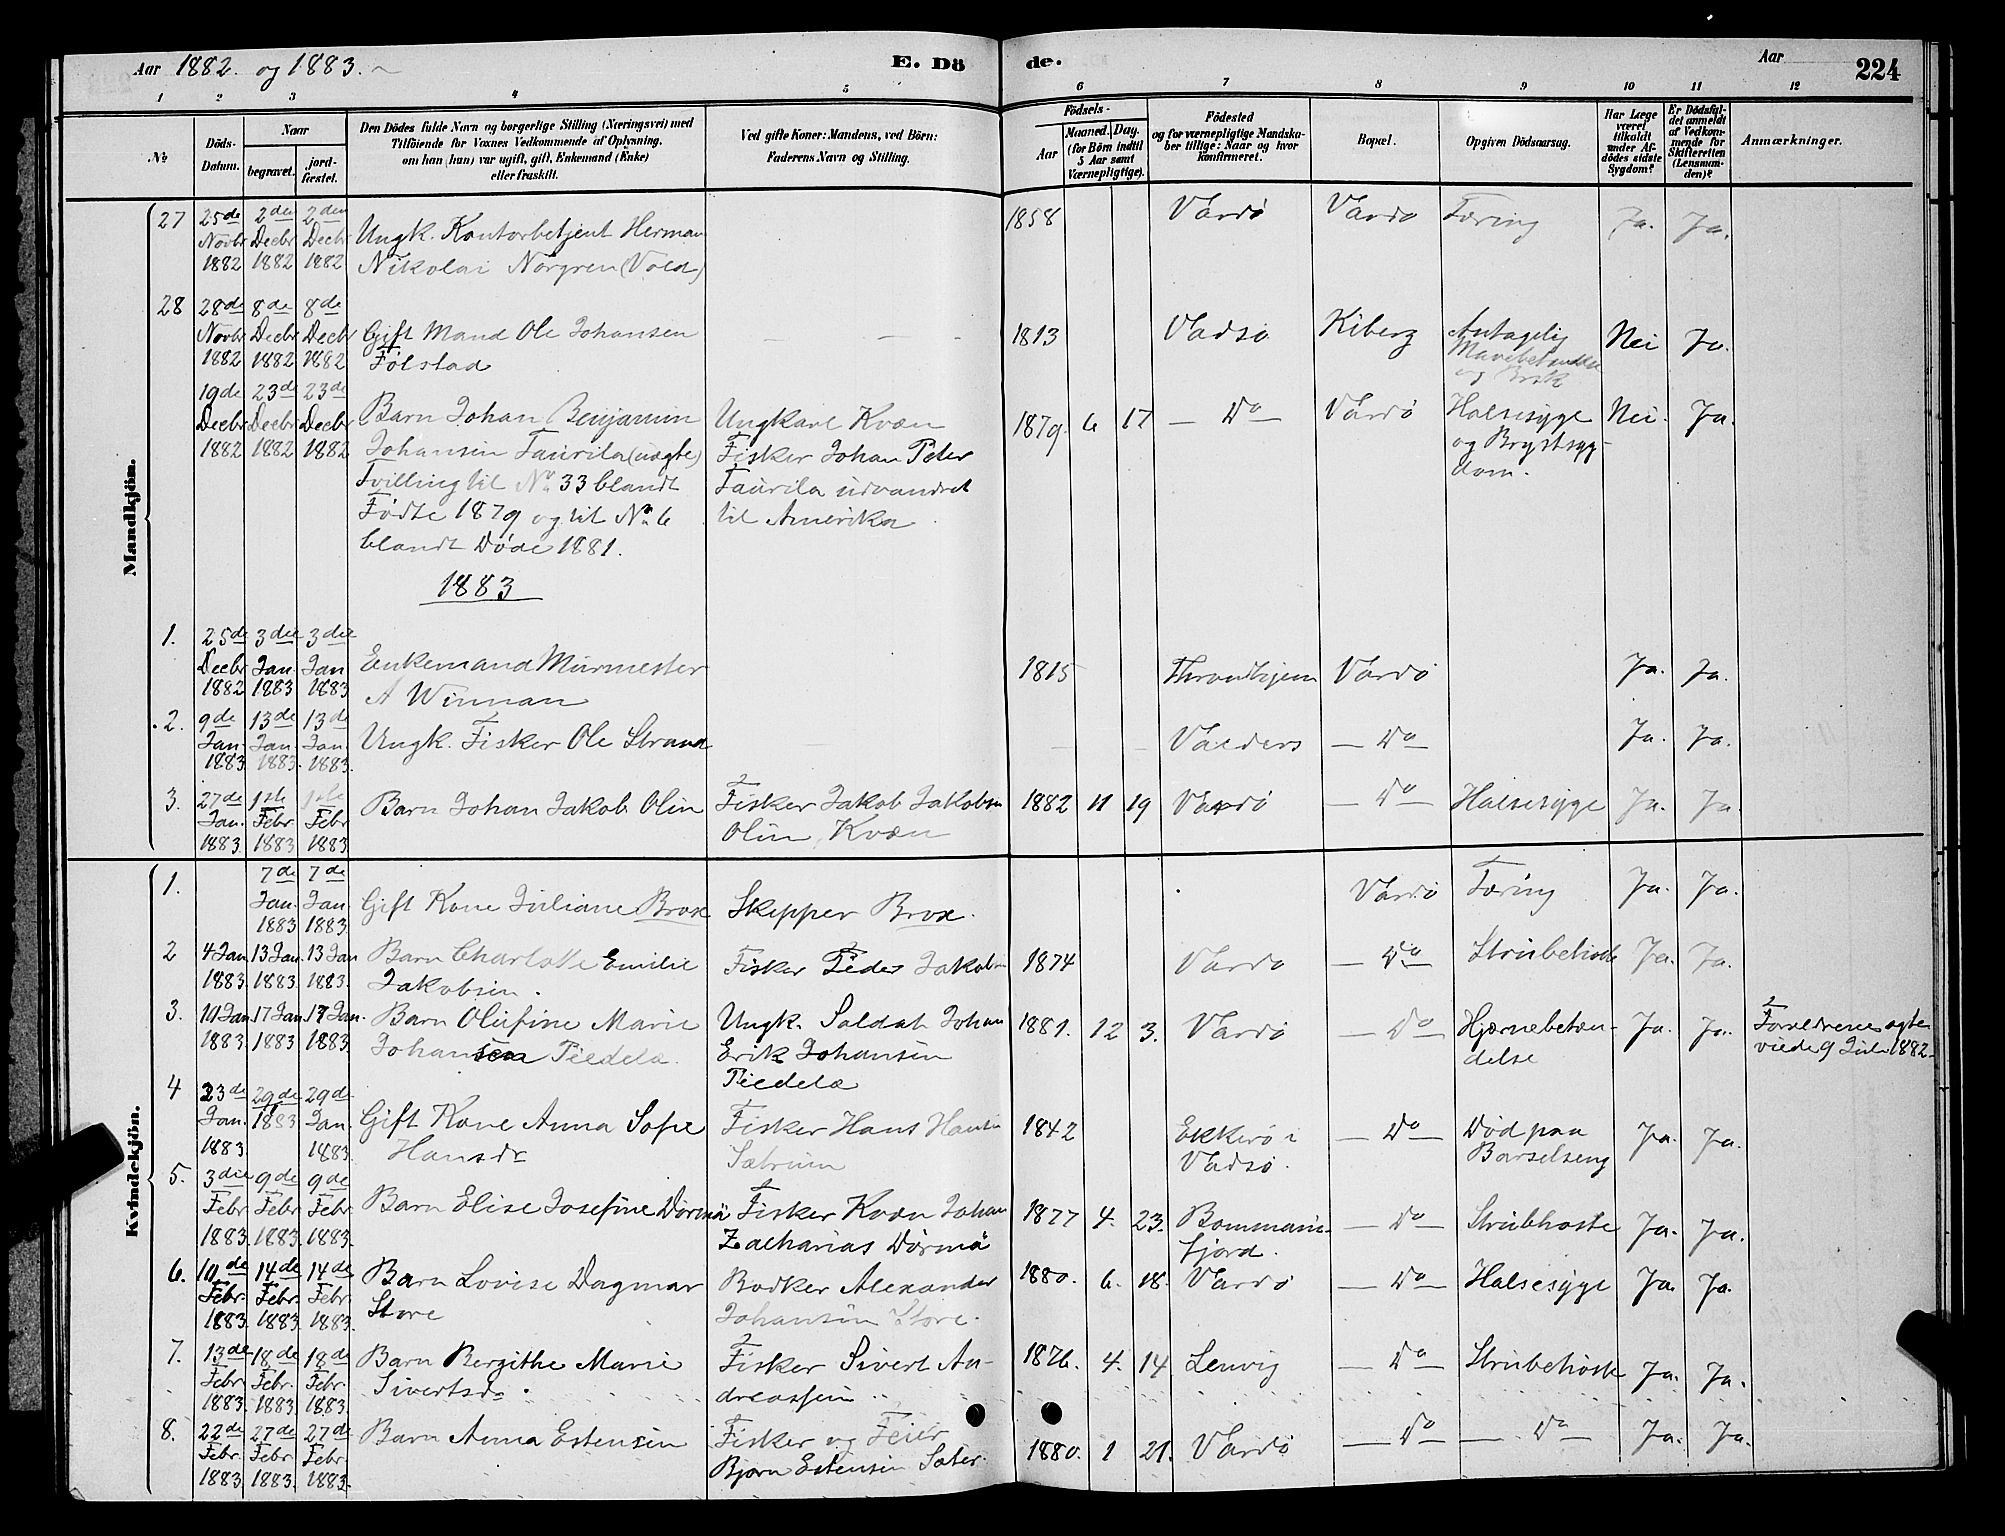 Aar 1882. og 1883.
E. Dö
de.
Aar
224
1 2 3 4 5 6 7 8 9 10 11 12
No
Döds-Datum.
Naar
begravet.
jord-fæstet.
Den Dödes fulde Navn og borgerlige Stilling (Næringsvei) med
Tilföiende for Voxnes Vedkommende af Oplysning,
om han (hun) var ugift, gift, Enkemand (Enke)
eller fraskilt.
Ved gifte Koner: Mandens, ved Börn:
Faderens Navn og Stilling.
Födsels-
Aar
Maaned.
Dag.
(for Börn indtil
5 Aar samt
Værnepligtige).
Födested
og for værnepligtige Mandska-
ber tillige: Naar og hvor
konfirmeret.
Bopæl.
Opgiven Dödsaarsag.
Har Læge
været
tilkaldt
under Af-
dödes sidste
Sygdom?
Er Dödsfal-
det anmeldt
af Vedkom-
mende for
Skifteretten
(Lensman-
den)?
Anmærkninger.
Mandkjön.
27 25de Novbr 1882 2den Decbr 1882 2den Decbr 1882
Ungk. Kontorbetjent Herman
Nikolai Norgren (Vold)
1858 Vardö Vardö Tæring Ja. Ja.
28 28de Novbr 1882 8de Decbr 1882 8de Decbr 1882
Gift Mand Ole Johansen
Følstad
1813 Vadsö Kiberg Antagelig
og Brok Nei Ja.
19de Decbr 1882 23de Decbr 1882 23de Decbr 1882
Barn Johan Benjamin
Johansen Taurila (uægte)
Tvilling til No 33 blandt
Fødte 1879 og til No 6
blandt Døde 1881.
Ungkarl Kvæn
Fisker Johan Peter
Taurila udvandret
til Amerika
1879. 6 17 — Do — Vardö Halsesyge
og Brystsyg-
dom. Nei. Ja.
1883
1. 25de Decbr 1882 3die Jan 1883 3die Jan 1883.
Enkemand Murmester
A Winnan
1815 Throndhjem Vardö Ja. Ja.
2. 9de Jan. 1883. 13de Jan. 1883. 13de Jan. 1883.
Ungk. Fisker Ole Strand
Valders — Do — Ja. Ja.
3. 27de Jan. 1883. 1ste Febr. 1883 1ste Febr 1883.
Barn Johan Jakob Olin
Fisker Jakob Jakobsen
Olin, Kvæn
1882 11 19 Vardö — Do — Halsesyge Ja. Ja.
Kvindekjön.
1. 7de Jan. 1883 7de Jan 1883.
Gift Kone Juliane Brox
Skipper Brox.
Vardö Tæring Ja. Ja.
2 4 Jan. 1883. 13 Jan. 1883. 13 Jan 1883.
Barn Charlotte Emilie
Jakobsen.
Fisker Peder Jakobsen
1874 Vardö — Do — Strubehoste Ja. Ja.
3. 10 Jan. 1883. 17 Jan. 1883 17 Jan. 1883.
Barn Olufine Marie
Johansen Piedelæ.
Ungk. Soldat Johan
Erik Johansen
Piedelæ
1881. 12 3. Vardö — Do — Hjærnebetæn-
delse Ja. Ja. Forældrenes ægte-
viede 9 Juli 1882.
4 23de Jan. 1883. 29de 1883 29de Jan. 1883.
Gift Kone Anna Sofie
Hansdr
Fisker Hans Hansen
Sætrum
1842 Ekkerö i
Vadsö. — Do — Död paa
Barselseng Ja. Ja.
5. 3die Febr 1883. 9de Febr 1883. 9de Febr. 1883.
Barn Elise Josefine Dörmä
Fisker Kvæn Johan
Zacharias Dörmä
1877 4. 23. Bommani-
fjord. — Do — Strubhoste Ja. Ja.
6. 10de Febr. 1883. 14de Febr. 1883. 14de Febr 1883.
Barn Lovise Dagmar
Store
Bödker Alexander
Johansen Store.
1880. 6. 18. Vardö — Do — Halsesyge Ja. Ja.
7. 13de Febr 1883. 18de Febr. 1883 18de Febr. 1883.
Barn Bergithe Marie
Sivertsdr.
Fisker Sivert An-
dreassen
1876. 4. 14. Lenvig — Do — Strubehoste Ja. Ja.
8. 22de Febr 1883. 27de Febr 1883. 27de Febr. 1883.
Barn Anna Estensen
Fisker og Feier
Bjorn Estensen Sæter.
1880. 1 21. Vardö — Do — — Do — Ja. Ja.